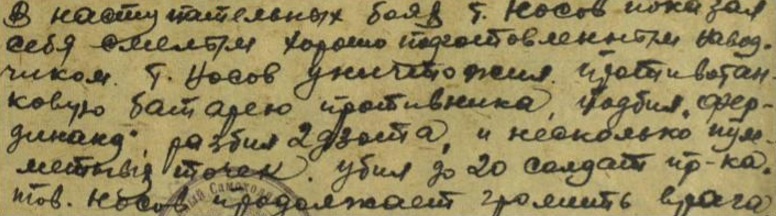 В наступательных боях т. Носов показал
себя смелым хорошо подготовленным навод-
чиком. т. Носов уничтожил противотан-
ковую батарею противника, подбил „Фер-
динанд", разбил 2 дзота, и несколько пуле-
метных точек. убил до 20 солдат пр-ка.
тов. Носов продолжает громить врага
ный Самоходн